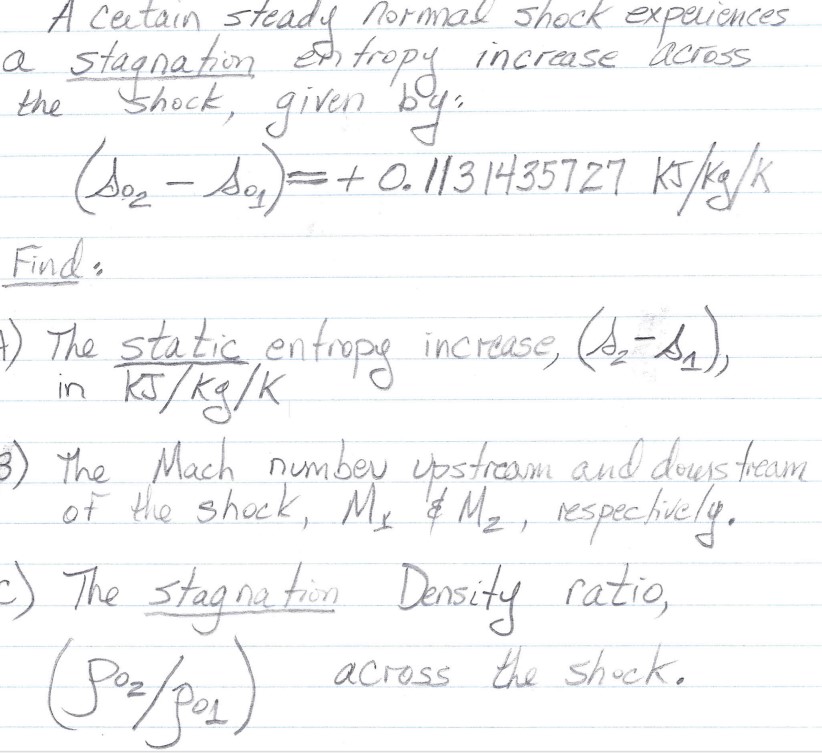 A certain steady normal shock experiences
a stagnation entropy increase across
the shock, given by:
(s₀₂ − s₀₁) = + 0.1131435727 KJ/kg/K
Find:
A) The static entropy increase, (s₂-s₁),
in KJ/kg/K
B) The Mach number upstream and downstream
of the shock, M₁ & M₂, respectively.
C) The stagnation Density ratio,
(ρ₀₂/ρ₀₁) across the shock.